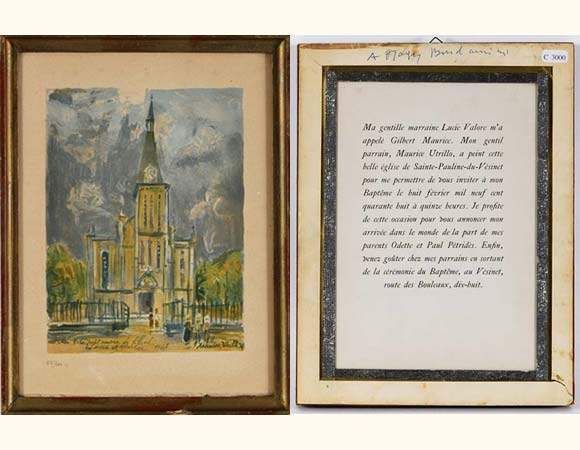 Ma gentille marraine Lucie Valore m'a
appelé Gilbert Maurice. Mon gentil
parrain, Maurice Utrillo, a peint cette
belle église de Sainte-Pauline-du-Vésinet
pour me permettre de vous inviter à mon
Baptême le huit février mil neuf cent
quarante huit à quinze heures. Je profite
de cette occasion pour vous annoncer mon
arrivée dans le monde de la part de mes
parents Odette et Paul Pétridès. Enfin,
venez goûter chez mes parrains en sortant
de la cérémonie du Baptême, au Vésinet,
route des Bouleaux, dix-huit.
C 3000